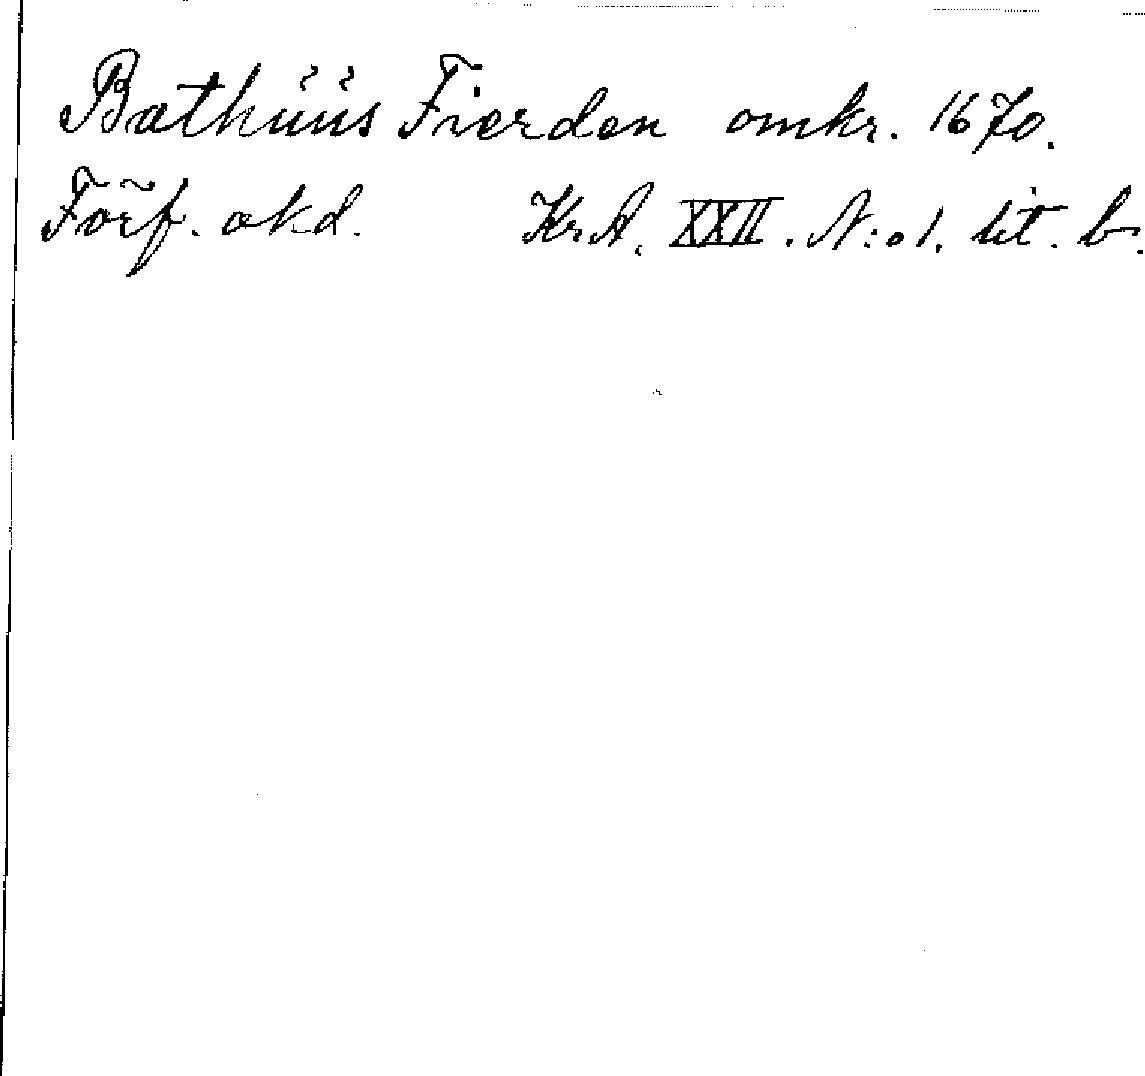 Bathüüs Fierden omkr. 1670.
Förf. okd. Kr. A. XXII. N:o 1. lit. b.